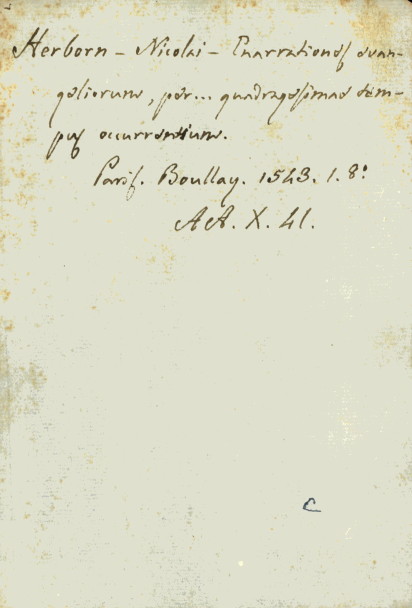 Herborn - Nicolai - Enarrationes evan-
geliorum, per... quadragesimae tem-
pus occurrentium.
Paris. Boullay. 1543. 1. 8°
AA. X. 41.
C